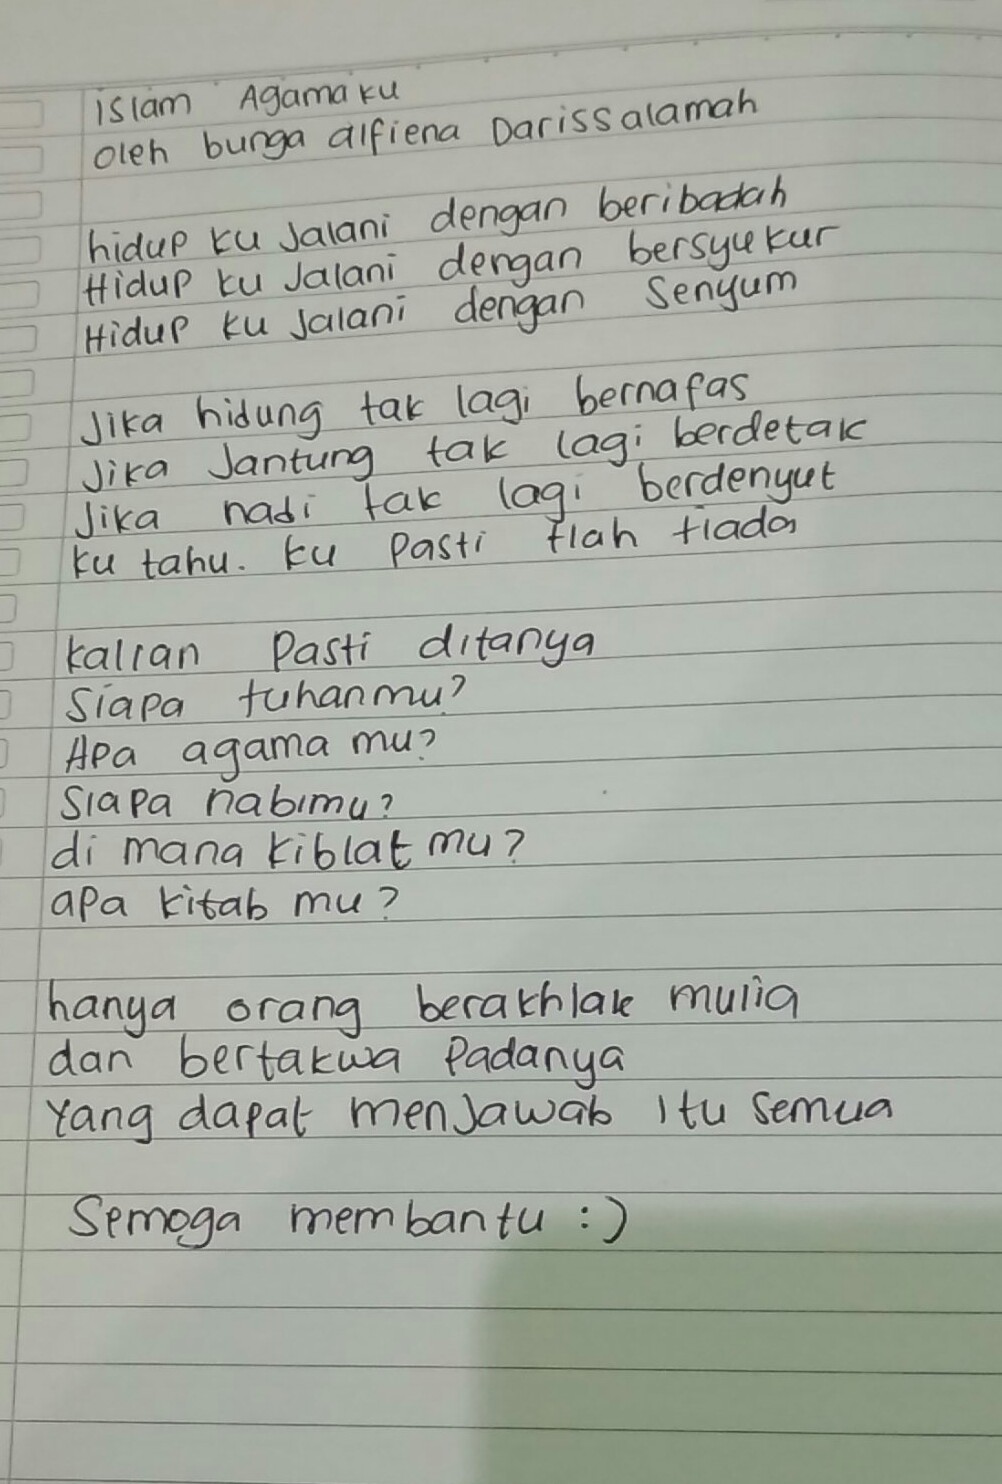 islam Agamaku
oleh bunga alfiena Darissalamah
hidup ku Jalani dengan beribadah
Hidup ku Jalani dengan bersyukur
Hidup ku Jalani dengan Senyum
Jika hidung tak lagi bernafas
Jika Jantung tak lagi berdetak
Jika nadi tak lagi berdenyut
ku tahu. ku Pasti tlah tiada
kalian Pasti ditanya
Siapa tuhanmu?
Apa agama mu?
Siapa nabimu?
di mana kiblat mu?
apa kitab mu?
hanya orang berakhlak mulia
dan bertakwa Padanya
Yang dapat menJawab itu semua
Semoga membantu :)